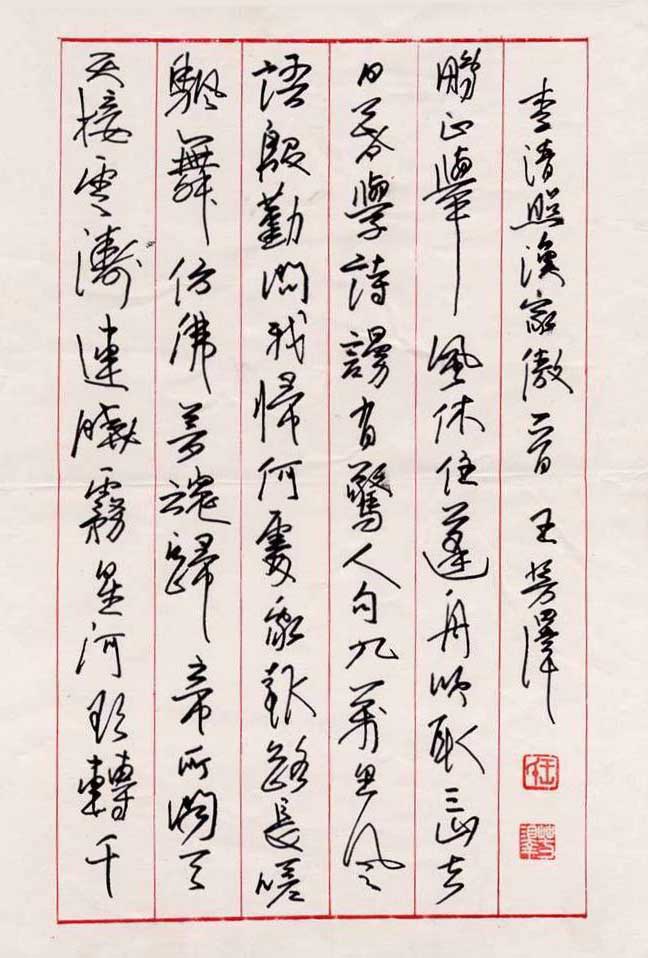 天接雲濤連曉霧星河欲轉千
颿舞仿佛夢魂歸帝所聞天
語殷勤問我歸何處我報路長嗟
日暮學詩謾有驚人句九萬里風
鵬正舉風休住蓬舟吹取三山去
李清照漁家傲一首 王芳澤